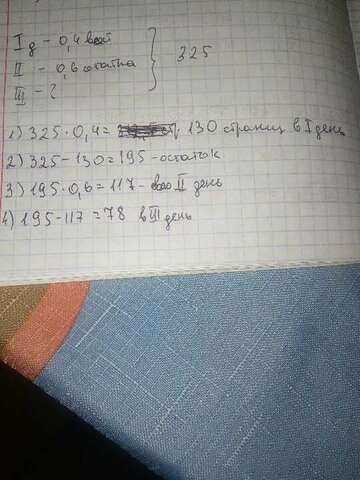 I д - 0,4 всей
II - 0,6 остатка } 325
III - ?
1) 325 · 0,4 = 130 страниц в I день
2) 325 - 130 = 195 - остаток
3) 195 · 0,6 = 117 - II день
4) 195 - 117 = 78 в III день